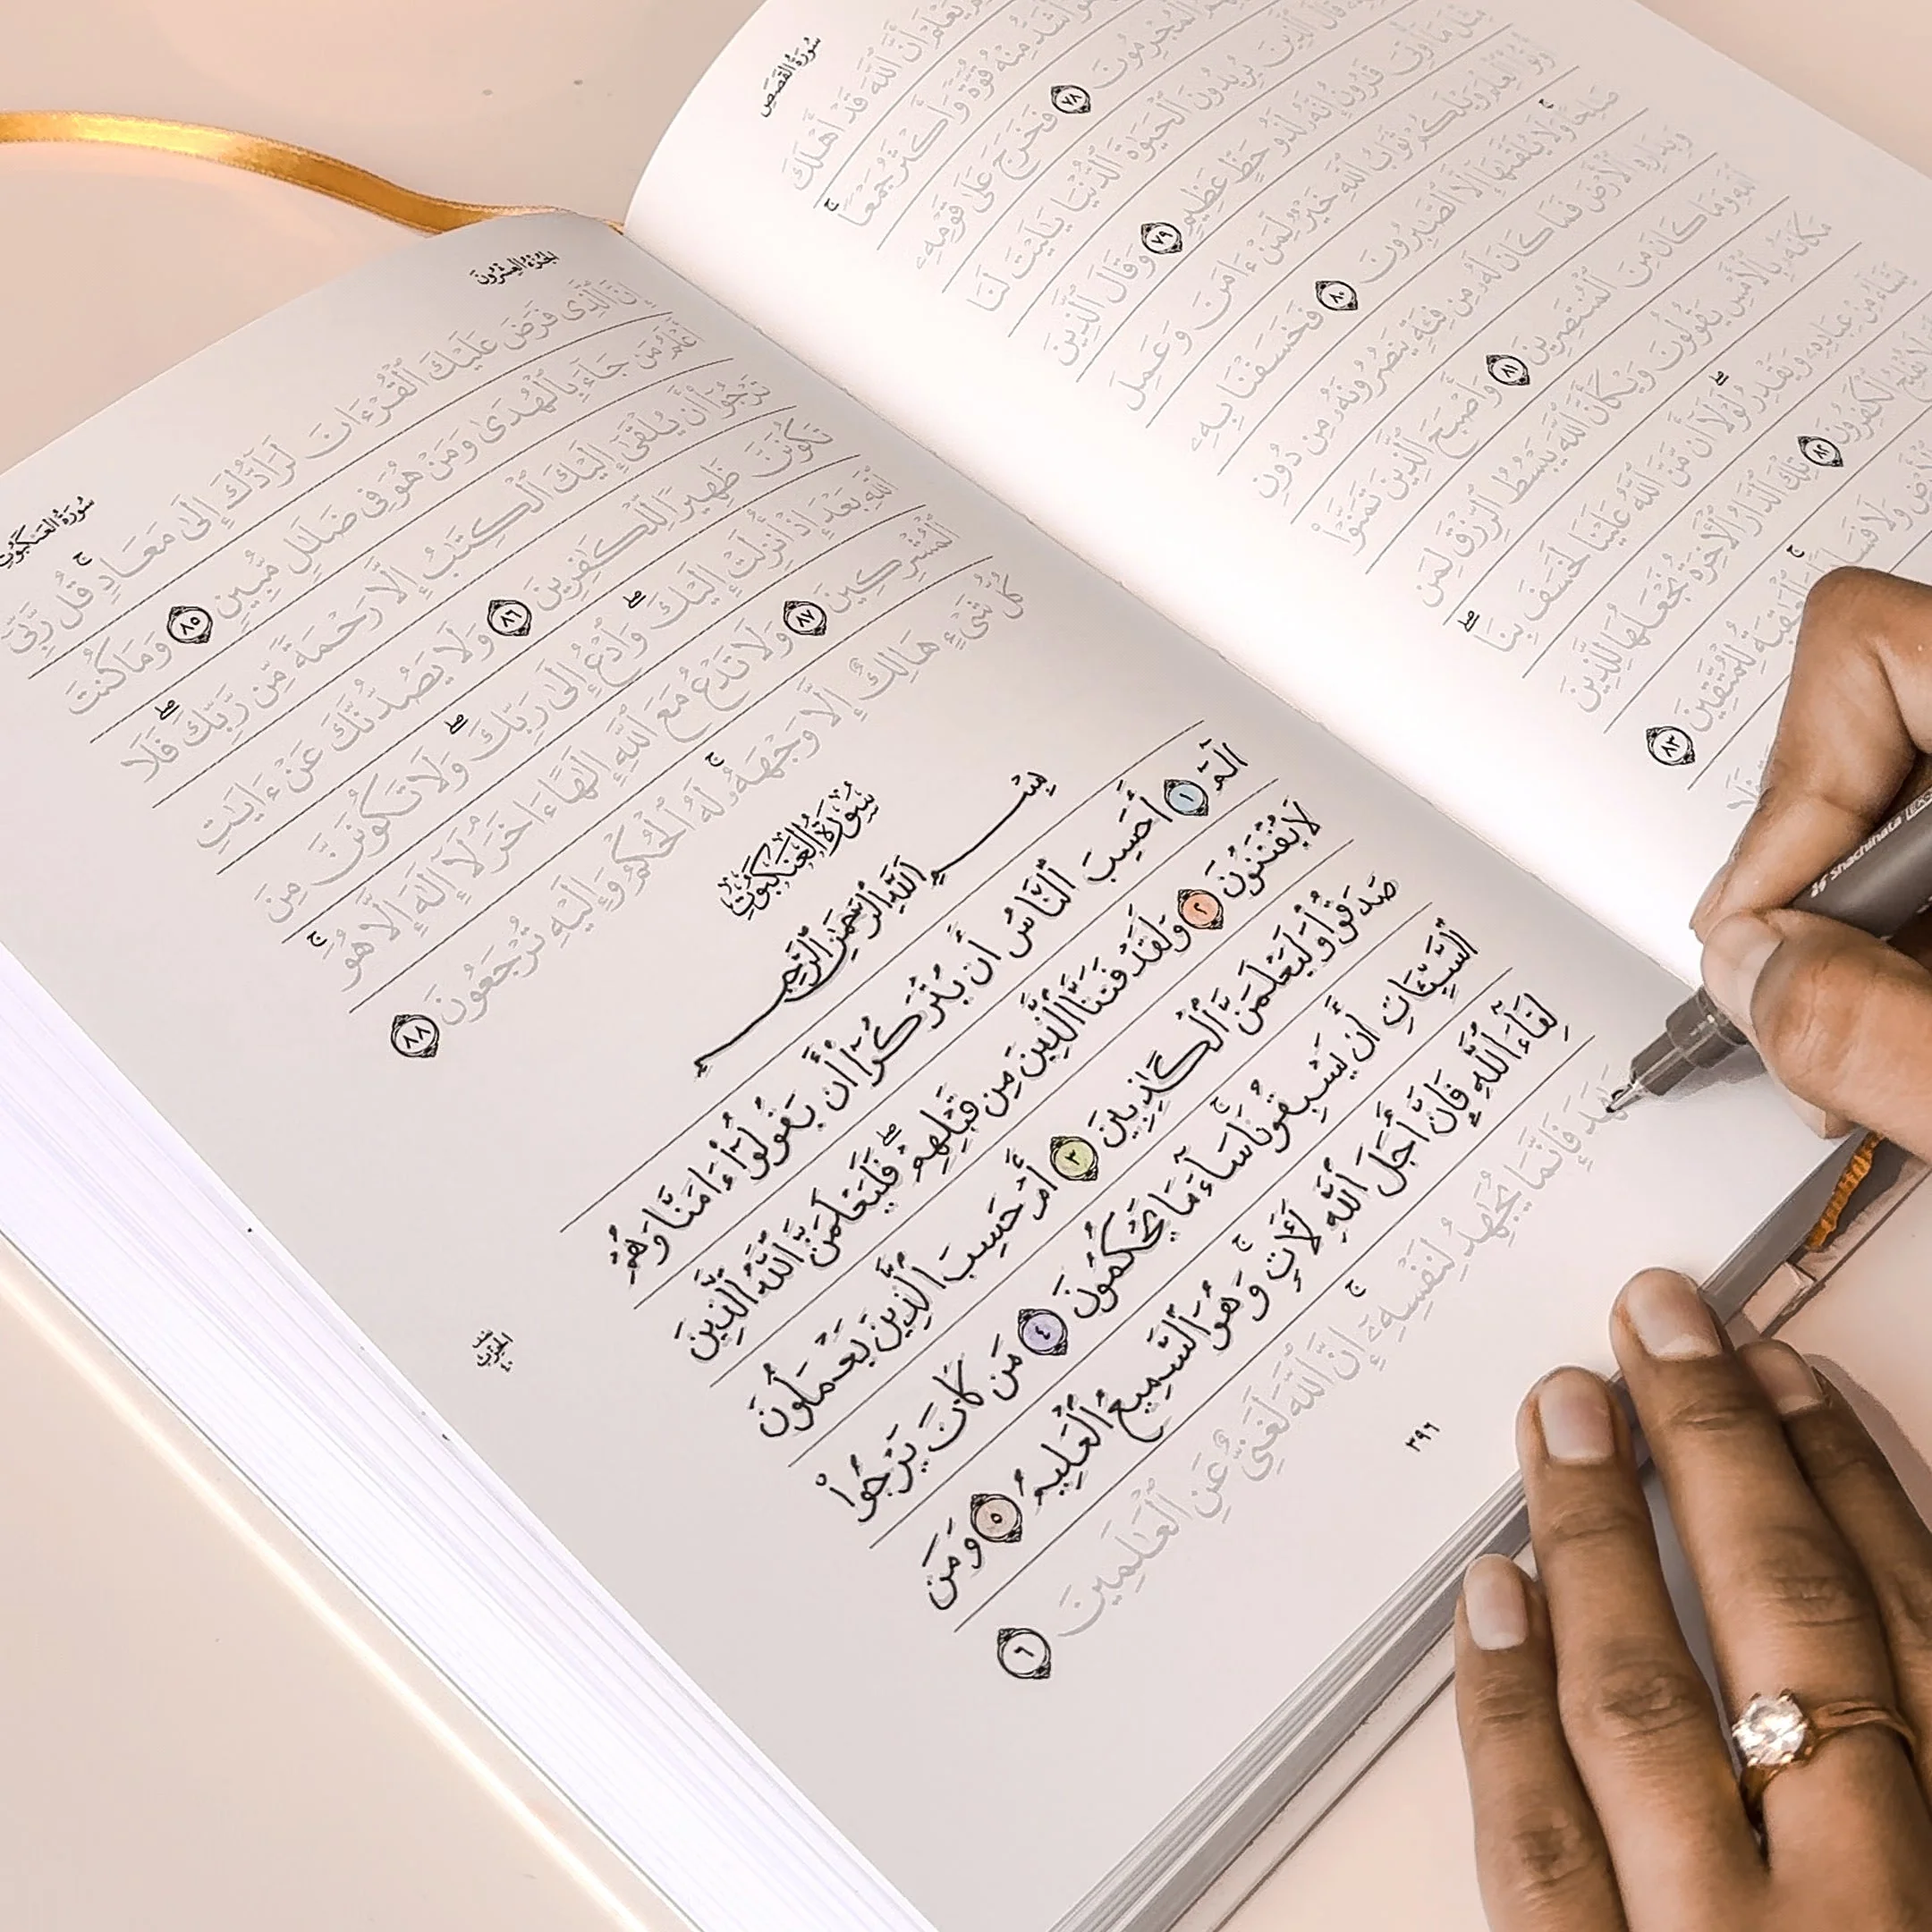 سُورَةُ القَصَصِ
يَعْلَمْ أَنَّ ٱللَّهَ قَدْ أَهْلَكَ
أَشَدُّ مِنْهُ قُوَّةً وَأَكْثَرُ جَمْعًا ۚ
ٱلْمُجْرِمُونَ ٧٨ فَخَرَجَ عَلَىٰ قَوْمِهِۦ
قَالَ ٱلَّذِينَ يُرِيدُونَ ٱلْحَيَوٰةَ ٱلدُّنْيَا يَـٰلَيْتَ لَنَا
مِثْلَ مَآ أُوتِىَ قَـٰرُونُ إِنَّهُۥ لَذُو حَظٍّ عَظِيمٍ ٧٩ وَقَالَ ٱلَّذِينَ
أُوتُوا۟ ٱلْعِلْمَ وَيْلَكُمْ ثَوَابُ ٱللَّهِ خَيْرٌ لِّمَنْ ءَامَنَ وَعَمِلَ
صَـٰلِحًا ۚ وَلَا يُلَقَّىٰهَآ إِلَّا ٱلصَّـٰبِرُونَ ٨٠ فَخَسَفْنَا بِهِۦ
وَبِدَارِهِ ٱلْأَرْضَ فَمَا كَانَ لَهُۥ مِن فِئَةٍ يَنصُرُونَهُۥ مِن دُونِ
ٱللَّهِ وَمَا كَانَ مِنَ ٱلْمُنتَصِرِينَ ٨١ وَأَصْبَحَ ٱلَّذِينَ تَمَنَّوْا۟
مَكَانَهُۥ بِٱلْأَمْسِ يَقُولُونَ وَيْكَأَنَّ ٱللَّهَ يَبْسُطُ ٱلرِّزْقَ لِمَن
يَشَآءُ مِنْ عِبَادِهِۦ وَيَقْدِرُ ۖ لَوْلَآ أَن مَّنَّ ٱللَّهُ عَلَيْنَا لَخَسَفَ بِنَا ۖ
لَا يُفْلِحُ ٱلْكَـٰفِرُونَ ٨٢ تِلْكَ ٱلدَّارُ ٱلْـَٔاخِرَةُ نَجْعَلُهَا لِلَّذِينَ
ٱلْأَرْضِ وَلَا فَسَادًا ۚ وَٱلْعَـٰقِبَةُ لِلْمُتَّقِينَ ٨٣
الجُزْءُ العِشْرُونَ
سُورَةُ العَنكَبُوتِ
إِنَّ ٱلَّذِى فَرَضَ عَلَيْكَ ٱلْقُرْءَانَ لَرَآدُّكَ إِلَىٰ مَعَادٍ ۚ قُل رَّبِّىٓ
أَعْلَمُ مَن جَآءَ بِٱلْهُدَىٰ وَمَنْ هُوَ فِى ضَلَـٰلٍ مُّبِينٍ ٨٥ وَمَا كُنتَ
تَرْجُوٓا۟ أَن يُلْقَىٰٓ إِلَيْكَ ٱلْكِتَـٰبُ إِلَّا رَحْمَةً مِّن رَّبِّكَ ۖ فَلَا
تَكُونَنَّ ظَهِيرًا لِّلْكَـٰفِرِينَ ٨٦ وَلَا يَصُدُّنَّكَ عَنْ ءَايَـٰتِ
ٱللَّهِ بَعْدَ إِذْ أُنزِلَتْ إِلَيْكَ ۖ وَٱدْعُ إِلَىٰ رَبِّكَ ۖ وَلَا تَكُونَنَّ مِنَ
ٱلْمُشْرِكِينَ ٨٧ وَلَا تَدْعُ مَعَ ٱللَّهِ إِلَـٰهًا ءَاخَرَ ۘ لَآ إِلَـٰهَ إِلَّا هُوَ ۚ
كُلُّ شَىْءٍ هَالِكٌ إِلَّا وَجْهَهُۥ ۚ لَهُ ٱلْحُكْمُ وَإِلَيْهِ تُرْجَعُونَ ٨٨
سُورَةُ العَنكَبُوتِ
بِسْمِ ٱللَّهِ ٱلرَّحْمَـٰنِ ٱلرَّحِيمِ
الٓمٓ ١ أَحَسِبَ ٱلنَّاسُ أَن يُتْرَكُوٓا۟ أَن يَقُولُوٓا۟ ءَامَنَّا وَهُمْ
لَا يُفْتَنُونَ ٢ وَلَقَدْ فَتَنَّا ٱلَّذِينَ مِن قَبْلِهِمْ ۖ فَلَيَعْلَمَنَّ ٱللَّهُ ٱلَّذِينَ
صَدَقُوا۟ وَلَيَعْلَمَنَّ ٱلْكَـٰذِبِينَ ٣ أَمْ حَسِبَ ٱلَّذِينَ يَعْمَلُونَ
ٱلسَّيِّـَٔاتِ أَن يَسْبِقُونَا ۚ سَآءَ مَا يَحْكُمُونَ ٤ مَن كَانَ يَرْجُوا۟
لِقَآءَ ٱللَّهِ فَإِنَّ أَجَلَ ٱللَّهِ لَـَٔاتٍ ۚ وَهُوَ ٱلسَّمِيعُ ٱلْعَلِيمُ ٥ وَمَن
جَـٰهَدَ فَإِنَّمَا يُجَـٰهِدُ لِنَفْسِهِۦٓ ۚ إِنَّ ٱللَّهَ لَغَنِىٌّ عَنِ ٱلْعَـٰلَمِينَ ٦
٣٩٦
Shachihata